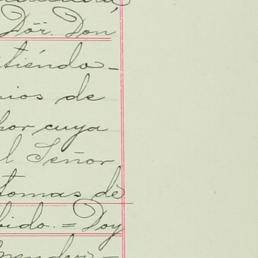 Dör. Don
tiéndo-
ios de
por cuya
l Señor,
tomas de
bido.=Doy